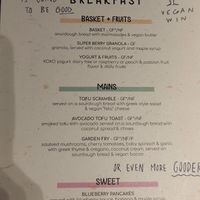 TO BE GOOD
BREAKFAST
VEGAN
WIN
BASKET + FRUITS
BASKET - GF*/NF
sourdough bread with marmalades & vegan butter
SUPER BERRY GRANOLA - GF
granola, served with coconut yogurt and maple syrup
YOGURT - GF*/NF
MAINS
TOFU SCRAMBLE - GF*/NF
served on a sourdough bread with greek style salad
& vegan "feta" cheese
AVOCADO TOFU TOAST - GF*/NF
smoked tofu with avocado served on a sourdough bread with
coconut spread & chives
GARDEN FRY - GF*/NF
sauteed mushrooms, cherry tomatoes, baby spinach & garlic
with greek thyme & oregano, coconut cream, served on
sourdough bread & vegan bacon
OR EVEN MORE GOODER
SWEET
BLUEBERRY PANCAKES